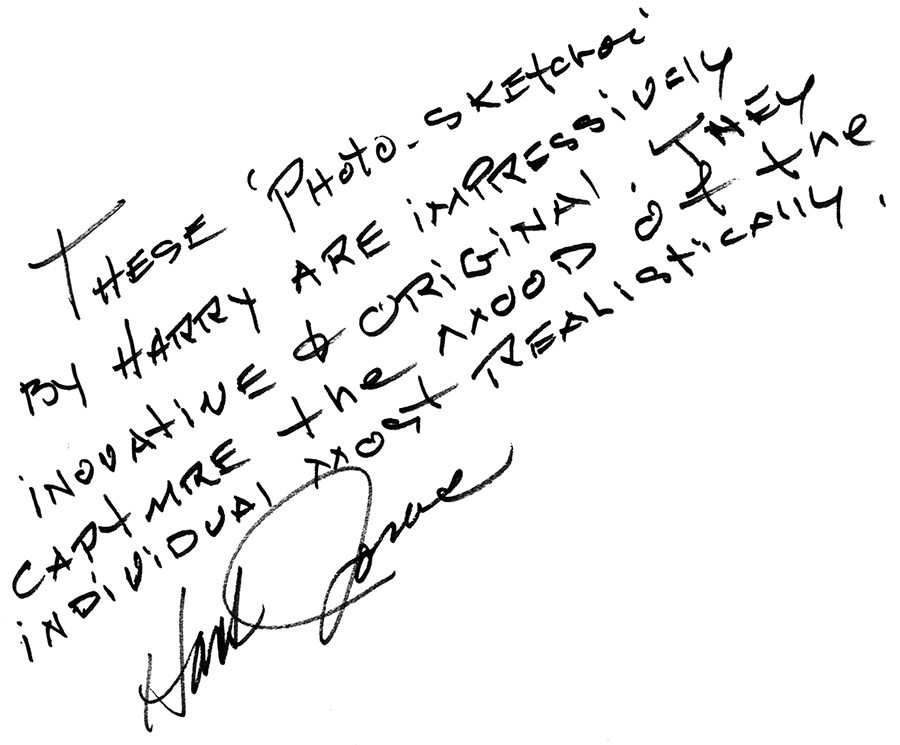 THESE 'PHOTO-SKETCHES'
BY HARRY ARE IMPRESSIVELY
INOVATIVE & ORIGINAL. THEY
CAPTURE the MOOD of the
INDIVIDUAL MOST REALISTICALLY.
Hank